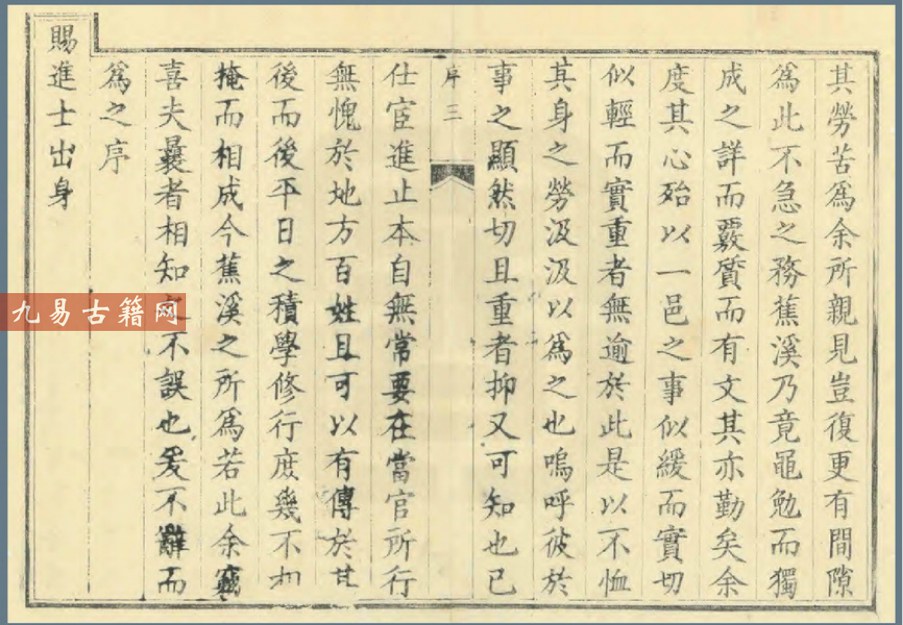 其勞苦爲余所親見豈復更有間隙
爲此不急之務蕉溪乃竟黽勉而獨
成之詳而覈質而有文其亦勤矣余
度其心殆以一邑之事似緩而實切
似輕而實重者無逾於此是以不恤
其身之勞汲汲以爲之也嗚呼彼於
事之顯然切且重者抑又可知也已
序 三
仕宦進止本自無常要在當官所行
無愧於地方百姓且可以有傳於其
後而後平日之積學修行庶幾不相
掩而相成今蕉溪之所爲若此余竊
喜夫曩者相知 不誤也爰不辭而
爲之序
賜進士出身
九易古籍网